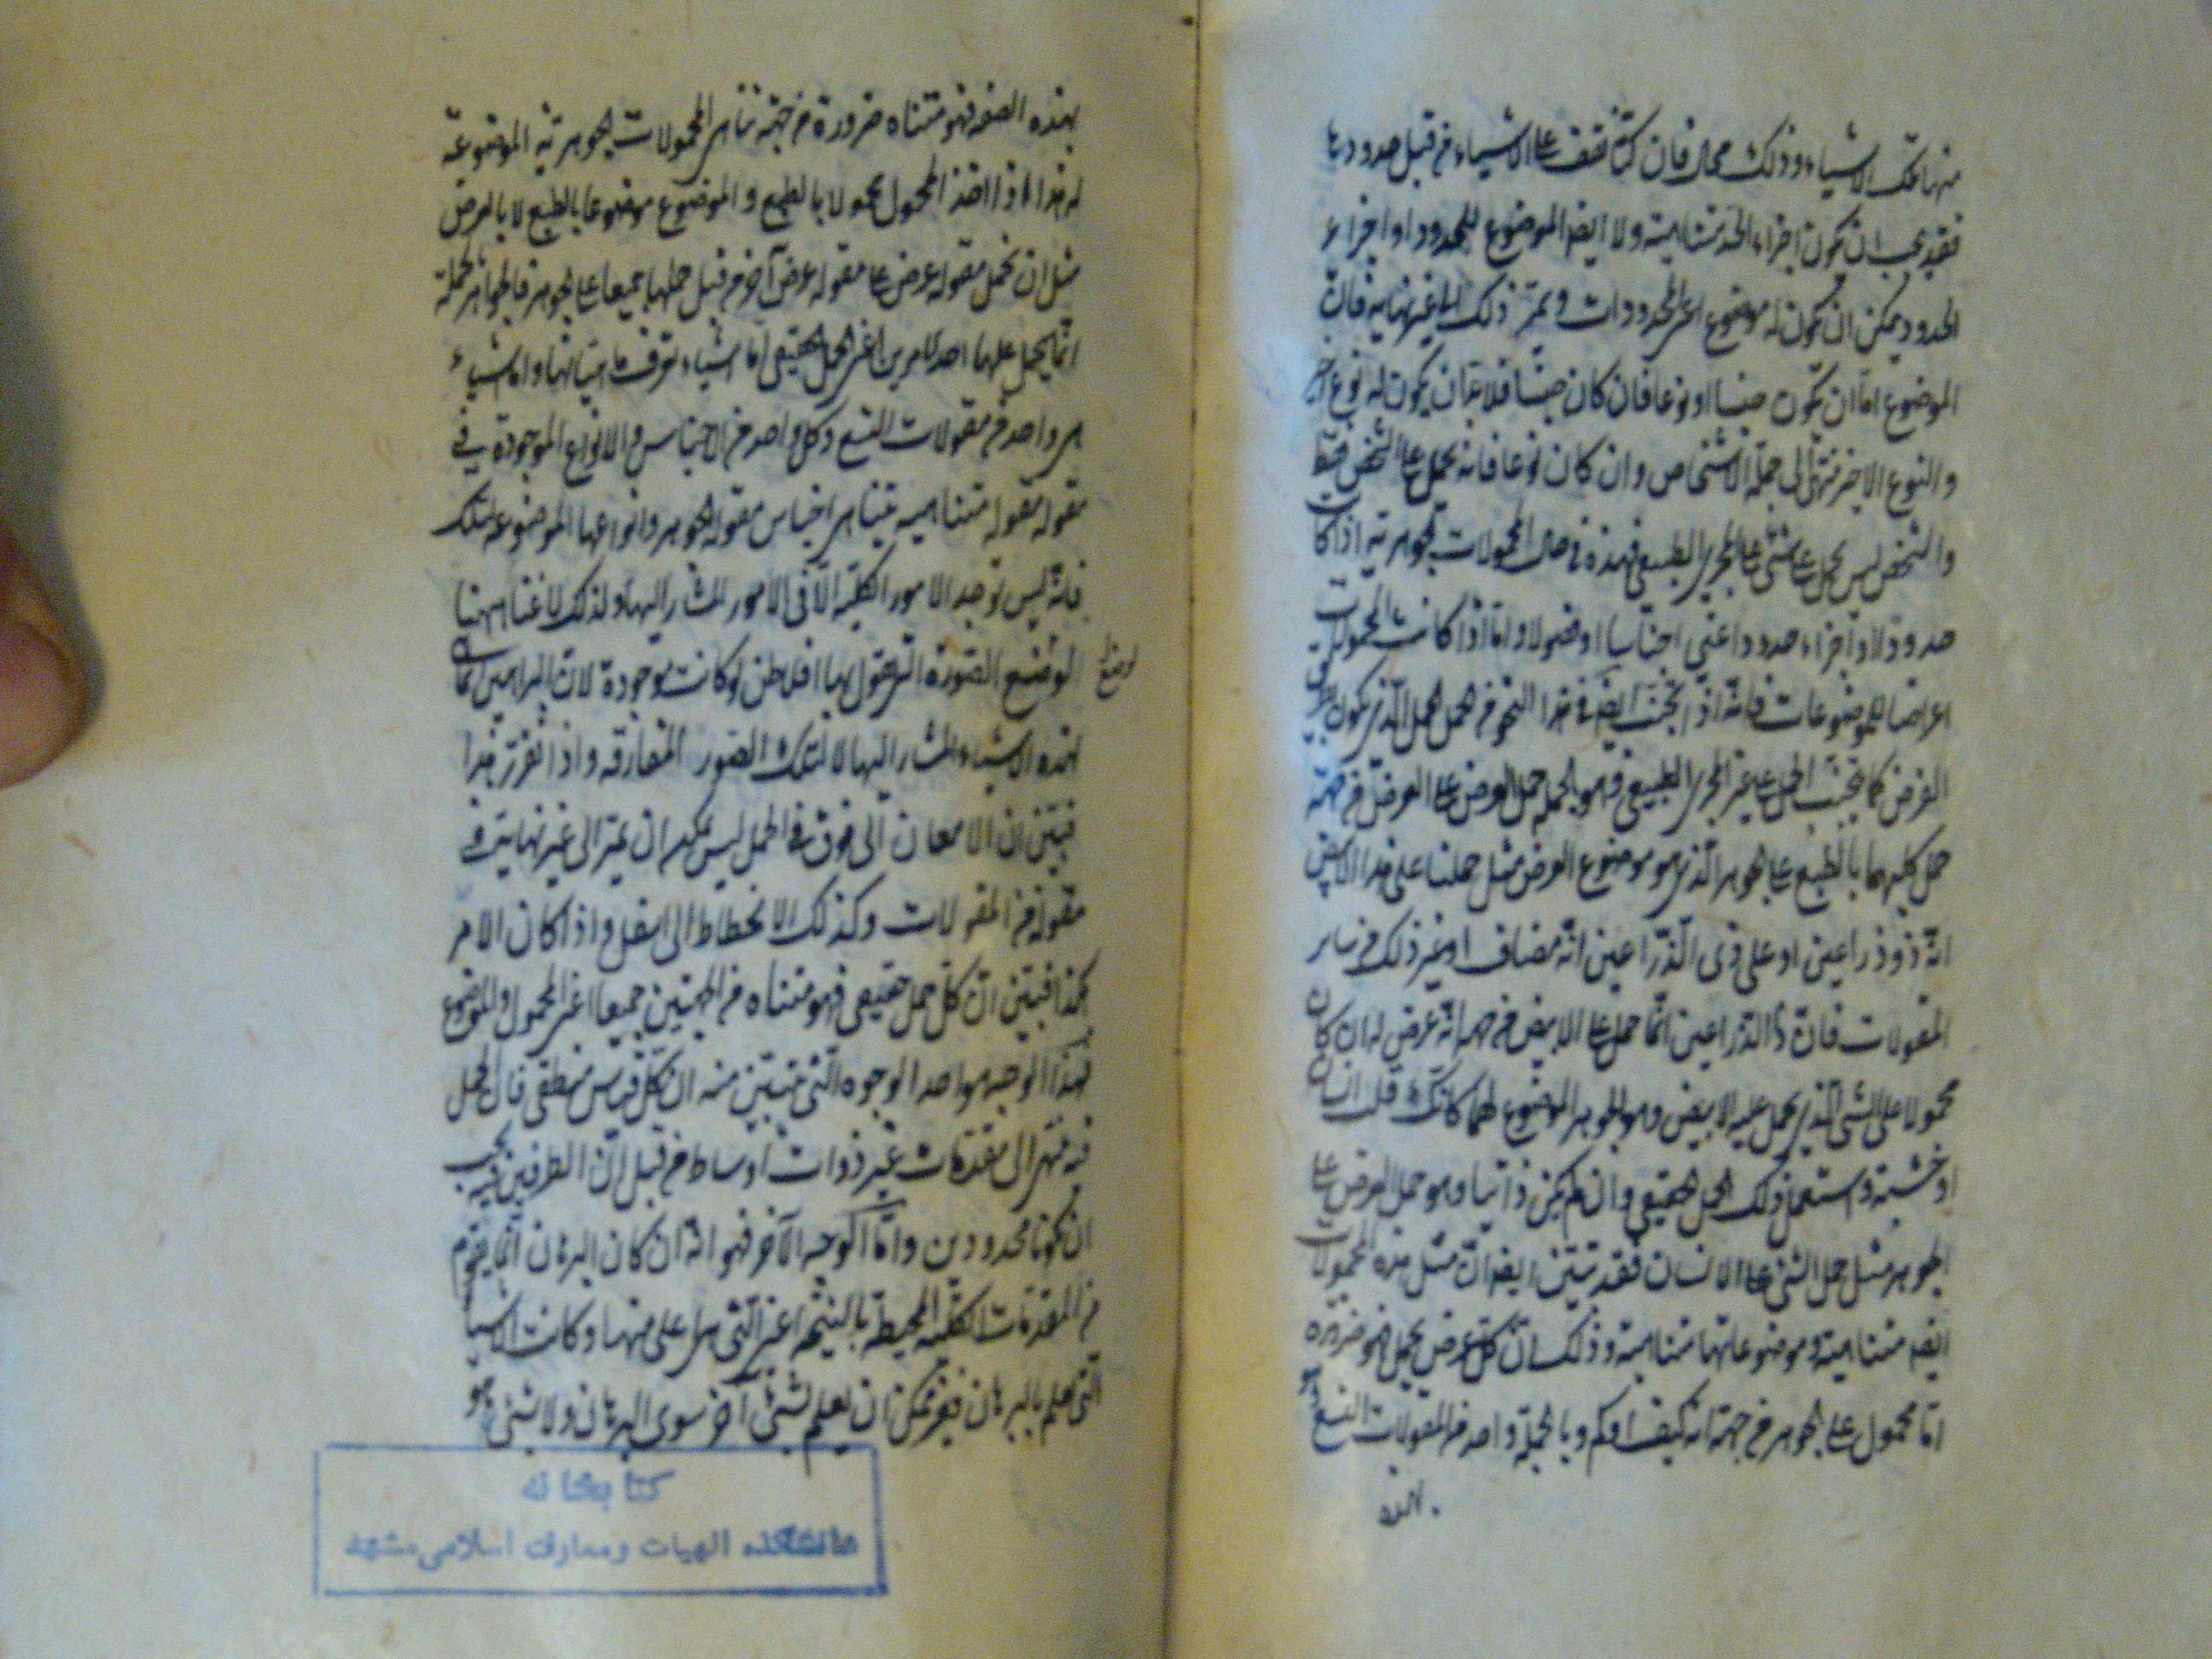 منها تلك الاشياء وذلك محال فان كنّا نقف على الاشياء من قبل حدودها
فقد يجب ان تكون اجزاء الحد متناهية ولا ايضا الموضوع للحدود او اجزاء
الحدود يمكن ان يكون له موضوع اعنى المحدودات ويمرّ ذلك الى غير نهاية فان
الموضوع امّا ان يكون جنسا او نوعا فان كان جنسا فلا بدّ ان يكون له نوع اخير
والنوع الاخير ينتهى الى جملة الاشخاص وان كان نوعا فانه يحمل على الشخص فقط
والشخص ليس يحمل على شئ على المجرى الطبيعى فهذه فى حال المحمولات الجوهرية اذا كانت
حدودا او اجزاء حدود اعنى اجناسا او فصولا وامّا اذا كانت المحمولات
اعراضا للموضوعات فانّه اذا تجنّب ايضا فى هذا النحو من الحمل الحمل الذى يكون بطريق
العرض كما تجنّب الحمل على غير المجرى الطبيعى وهو بالجملة حمل العرض على العرض من جهة
حمل كليهما بالطبع على الجوهر الذى هو موضوع العرض مثل حملنا على هذا الابيض
انّه ذو ذراعين او على ذى الذّراعين انّه مضاف او غير ذلك من سائر
المقولات فانّ ذا الذراعين انّما حمل على الابيض من جهة انّه عرض له ان كان
محمولا على الشئ الذى يحمل عليه الابيض وهو الجوهر الموضوع لهما كانّك قلت انسان
او خشبة واستعمل ذلك الحمل الحقيقى وان لم يكن ذاتيا وهو حمل العرض على
الجوهر مثل حمل الشئ على الانسان فقد تبيّن ايضا انّ مثل هذه المحمولات
ايضا متناهية وموضوعاتها متناهية وذلك انّ كل عرض يحمل فهو ضرورة
امّا محمول على الجوهر من جهة انّه كيف او كم وبالجملة واحد من المقولات التسع
بهذه الصفة فهو متناه ضرورة من جهة تناهى المحمولات الجوهرية الموضوعة
له هذا اذا اخذ المحمول محمولا بالطبع والموضوع موضوعا بالطبع لا بالعرض
مثل ان تحمل مقولة عرض على مقولة عرض آخر من قبل حملها جميعا على الجوهر فالجواهر بالجملة
انّما يحمل عليها احد الامرين اعنى الحمل الحقيقى امّا اشياء توقف على ماهياتها وامّا اشياء
هى واحد من مقولات التسع وكل واحد من الاجناس والانواع الموجودة فى
مقولة مقولة متناهية بتناهى اجناس مقولة الجوهر وانواعها الموضوعة لتلك
فانّه ليس توجد الامور الكليّة الّا فى الامور المشار اليها ولذلك لا غنا ههنا
لوضع الصّورة التى يقول بها افلاطن لو كانت موجودة لان البراهين انّما
لوضع
لهذه الاشياء المشار اليها لا لتلك الصّور المفارقة واذا تقرّر هذا
فبيّن ان الامعان الى فوق فى الحمل ليس يمكن ان يمرّ الى غير نهاية فى
مقولة من المقولات وكذلك الانحطاط الى اسفل واذا كان الامر
هكذا فبيّن انّ كل حمل حقيقى فهو متناه من الجهتين جميعا اعنى المحمول والموضوع
فهذا الوجه هو احد الوجوه التى تبيّن منه ان كلّ قياس منطقى فان الحمل
فيه ينتهى الى مقدّمات غير ذوات اوساط من قبل انّ الطرفين فيه يجب
ان يكونا محدودين وامّا الوجه الآخر فهو انّه ان كان البرهان انّما يقوم
من المقدّمات الكليّة المحيطة بالنتيجة اعنى التى هى اعلى منها وكانت الاشياء
التى تعلم بالبرهان فغير ممكن ان يعلم بشئ آخر سوى البرهان ولا بشئ هو
كتابخانه
دانشكده الهيات ومعارف اسلامى مشهد